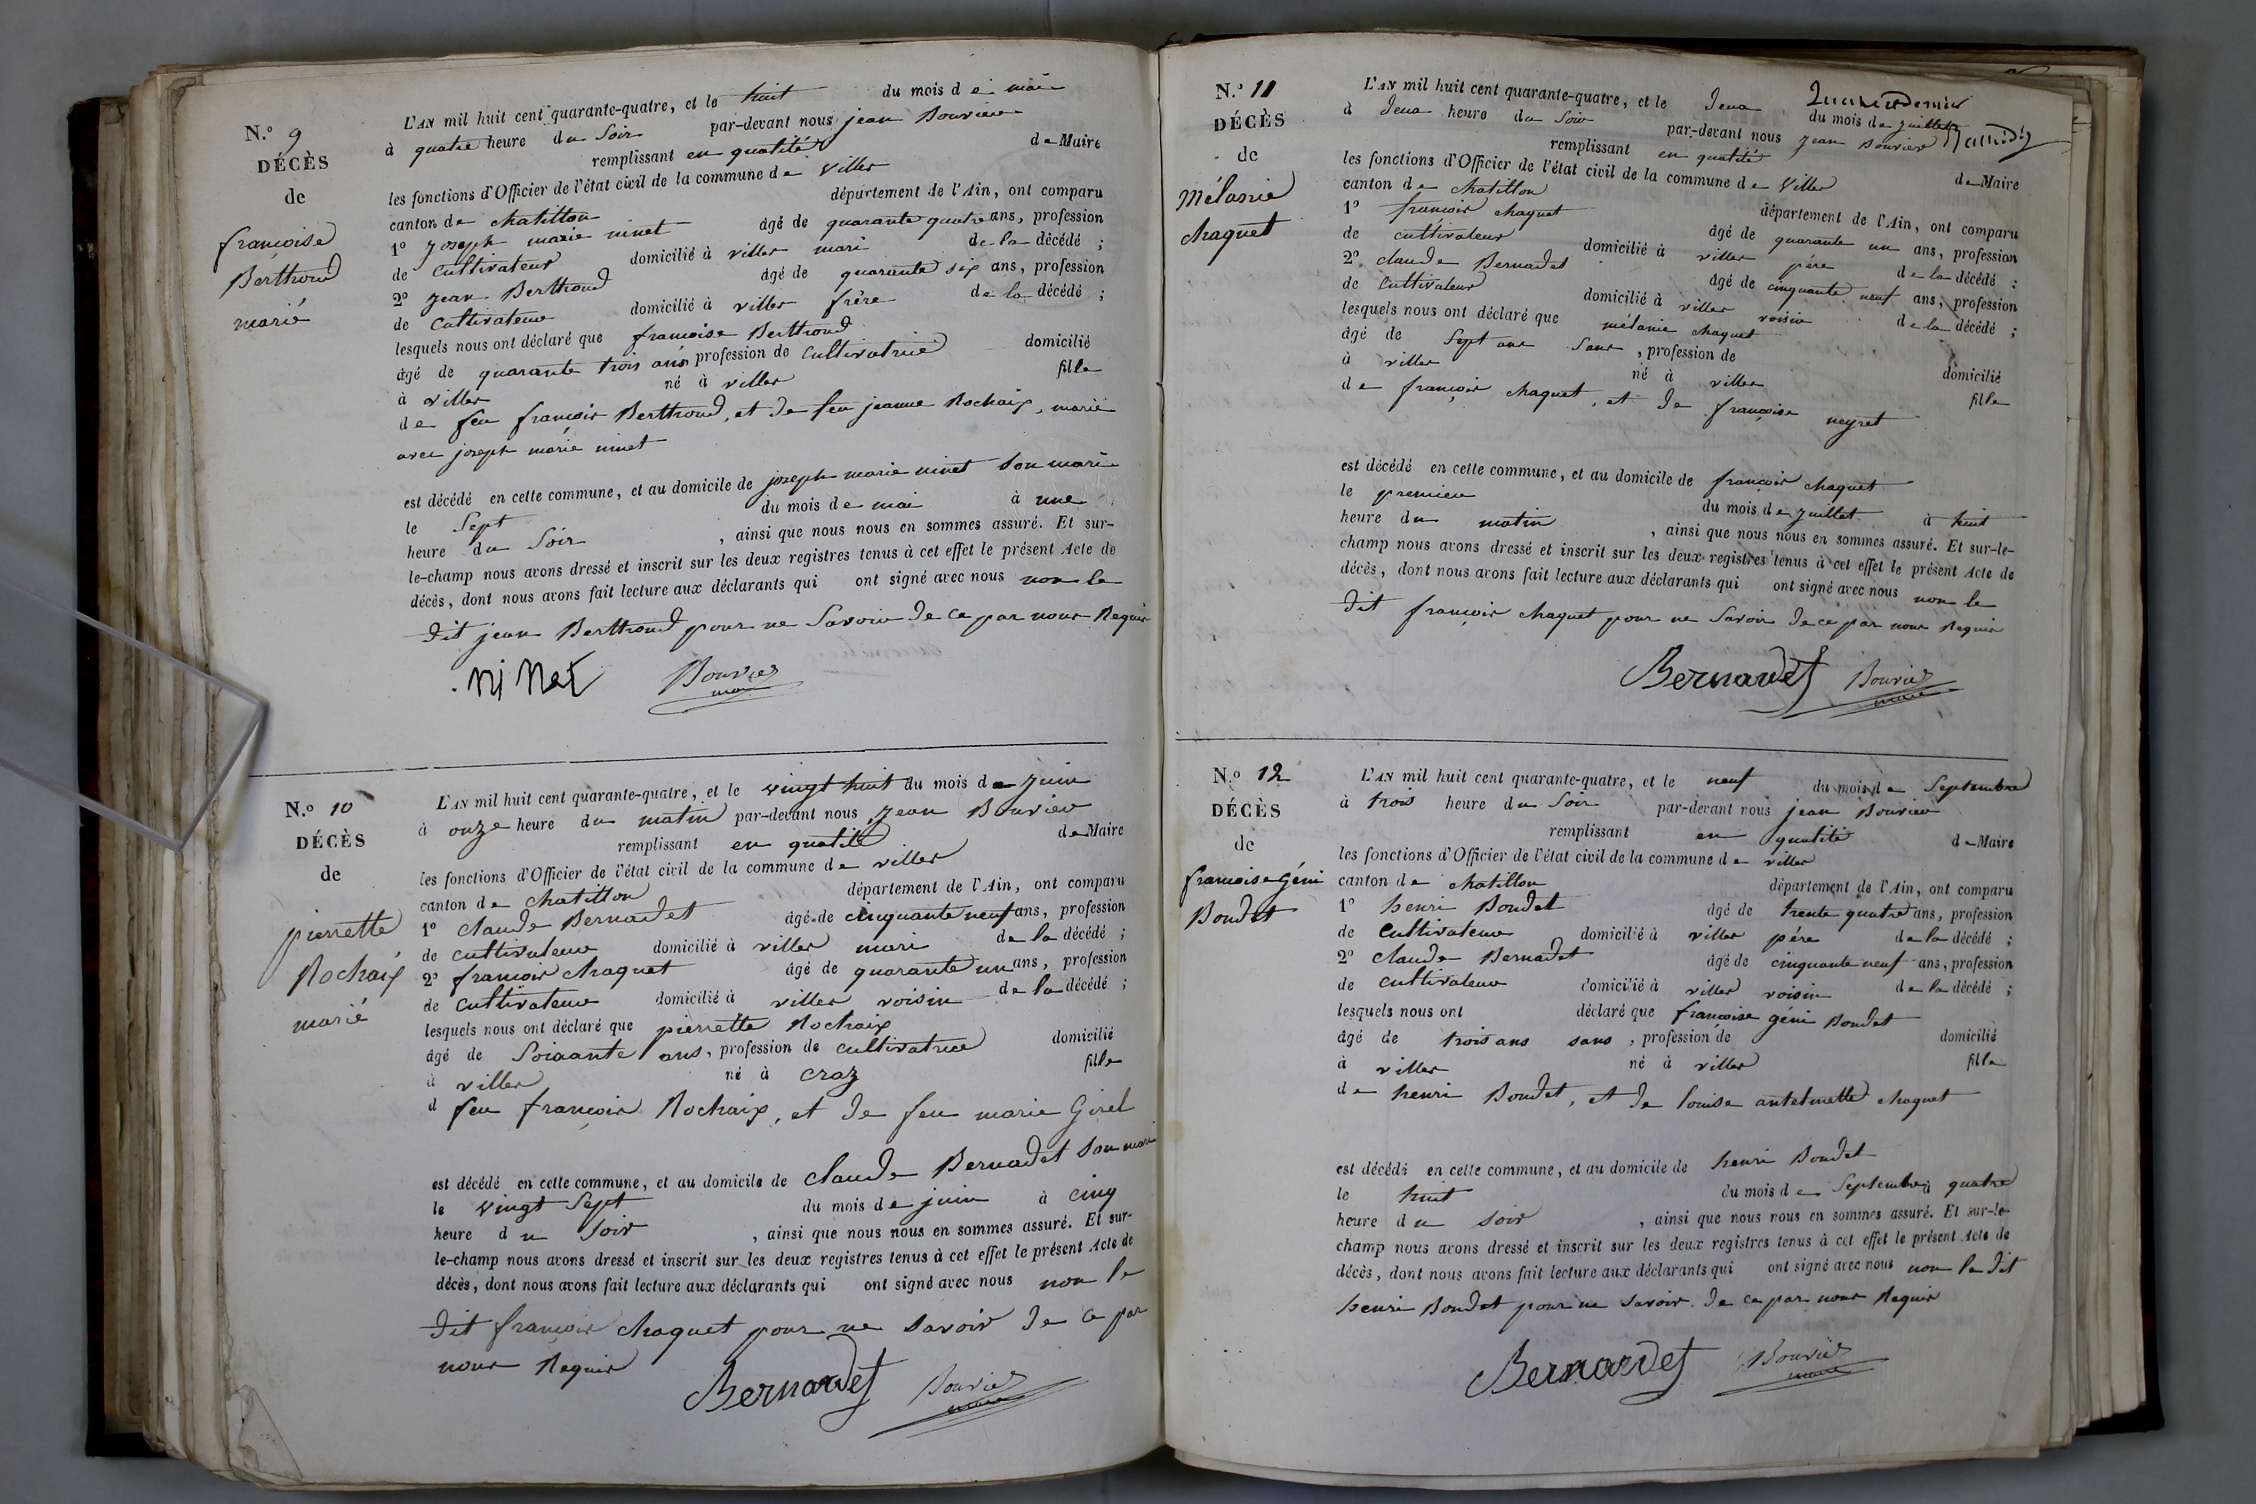 N.º 9
DÉCÈS
de
françoise
Berthoud
marié
L'AN mil huit cent quarante-quatre, et le huit du mois de mai
à quatre heure du Soir par-devant nous jean Bouvier
remplissant en qualité de Maire
les fonctions d'Officier de l'état civil de la commune de Viller
canton de chatillon département de l'Ain, ont comparu
1º joseph marie ninet âgé de quarante quatre ans, profession
de Cultivateur domicilié à viller mari de la décédé ;
2º jean Berthoud âgé de quarante six ans, profession
de Cultivateur domicilié à viller frère de la décédé ;
lesquels nous ont déclaré que françoise Berthoud
âgé de quarante trois ans profession de Cultivatrice domicilié
à viller né à viller fille
de feu françois Berthoud, et de feu jeanne Rochaix, marié
avec joseph marie ninet
est décédé en cette commune, et au domicile de joseph marie ninet son mari
le Sept du mois de mai à une
heure du Soir , ainsi que nous nous en sommes assuré. Et sur-
le-champ nous avons dressé et inscrit sur les deux registres tenus à cet effet le présent Acte de
décès, dont nous avons fait lecture aux déclarants qui ont signé avec nous non le
dit jean Berthoud pour ne Savoir de ce par nous Requis
Ninet Bouvier
maire
N.º 10
DÉCÈS
de
pierrette
Rochaix
marié
L'AN mil huit cent quarante-quatre, et le vingt huit du mois de juin
à onze heure du matin par-devant nous jean Bouvier
remplissant en qualité de Maire
les fonctions d'Officier de l'état civil de la commune de viller
canton de chatillon département de l'Ain, ont comparu
1º claude Bernardet âgé de cinquante neuf ans, profession
de cultivateur domicilié à viller mari de la décédé ;
2º françois chaquet âgé de quarante un ans, profession
de cultivateur domicilié à viller voisin de la décédé ;
lesquels nous ont déclaré que pierrette Rochaix
âgé de Soixante ans, profession de cultivatrice domicilié
à viller né à craz fille
d feu françois Rochaix, et de feu marie Girel
est décédé en cette commune, et au domicile de claude Bernadet son mari
le vingt Sept du mois de juin à cinq
heure du Soir , ainsi que nous nous en sommes assuré. Et sur-
le-champ nous avons dressé et inscrit sur les deux registres tenus à cet effet le présent Acte de
décès, dont nous avons fait lecture aux déclarants qui ont signé avec nous non le
dit françois chaquet pour ne savoir de ce par
nous Requis
Bernardet Bouvier
maire
N.º 11
DÉCÈS
de
Mélanie
chaquet
L'AN mil huit cent quarante-quatre, et le deux du mois de juillet
à deux heure du Soir par-devant nous jean Bouvier
remplissant en qualité de Maire
les fonctions d'Officier de l'état civil de la commune de Viller
canton de chatillon département de l'Ain, ont comparu
1º françois chaquet âgé de quarante un ans, profession
de cultivateur domicilié à viller père de la décédé ;
2º claude Bernardet âgé de cinquante neuf ans, profession
de Cultivateur domicilié à viller voisin de la décédé ;
lesquels nous ont déclaré que mélanie chaquet
âgé de Sept ans Sans , profession de domicilié
à viller né à viller fille
de françois chaquet, et de françoise neyret
est décédé en cette commune, et au domicile de françois chaquet
le premier du mois de juillet à huit
heure du matin , ainsi que nous nous en sommes assuré. Et sur-le-
champ nous avons dressé et inscrit sur les deux registres tenus à cet effet le présent Acte de
décès, dont nous avons fait lecture aux déclarants qui ont signé avec nous non le
dit françois chaquet pour ne Savoir de ce par nous Requis
Bernardet Bouvier
maire
N.º 12
DÉCÈS
de
françoise Géni
Boudet
L'AN mil huit cent quarante-quatre, et le neuf du mois de Septembre
à trois heure du Soir par-devant nous jean Bouvier
remplissant en qualité de Maire
les fonctions d'Officier de l'état civil de la commune de viller
canton de chatillon département de l'Ain, ont comparu
1º henri Boudet âgé de trente quatre ans, profession
de Cultivateur domicilié à viller père de la décédé ;
2º claude Bernadet âgé de cinquante neuf ans, profession
de cultivateur domicilié à viller voisin de la décédé ;
lesquels nous ont déclaré que françoise géni Boudet
âgé de trois ans sans , profession de domicilié
à viller né à viller fille
de henri Boudet, et de louise chaquet
est décédé en cette commune, et au domicile de henri Boudet
le huit du mois de Septembre à quatre
heure du soir , ainsi que nous nous en sommes assuré. Et sur-le-
champ nous avons dressé et inscrit sur les deux registres tenus à cet effet le présent Acte de
décès, dont nous avons fait lecture aux déclarants qui ont signé avec nous non le dit
henri Boudet pour ne savoir de ce par nous Requis
Bernardet Bouvier
maire